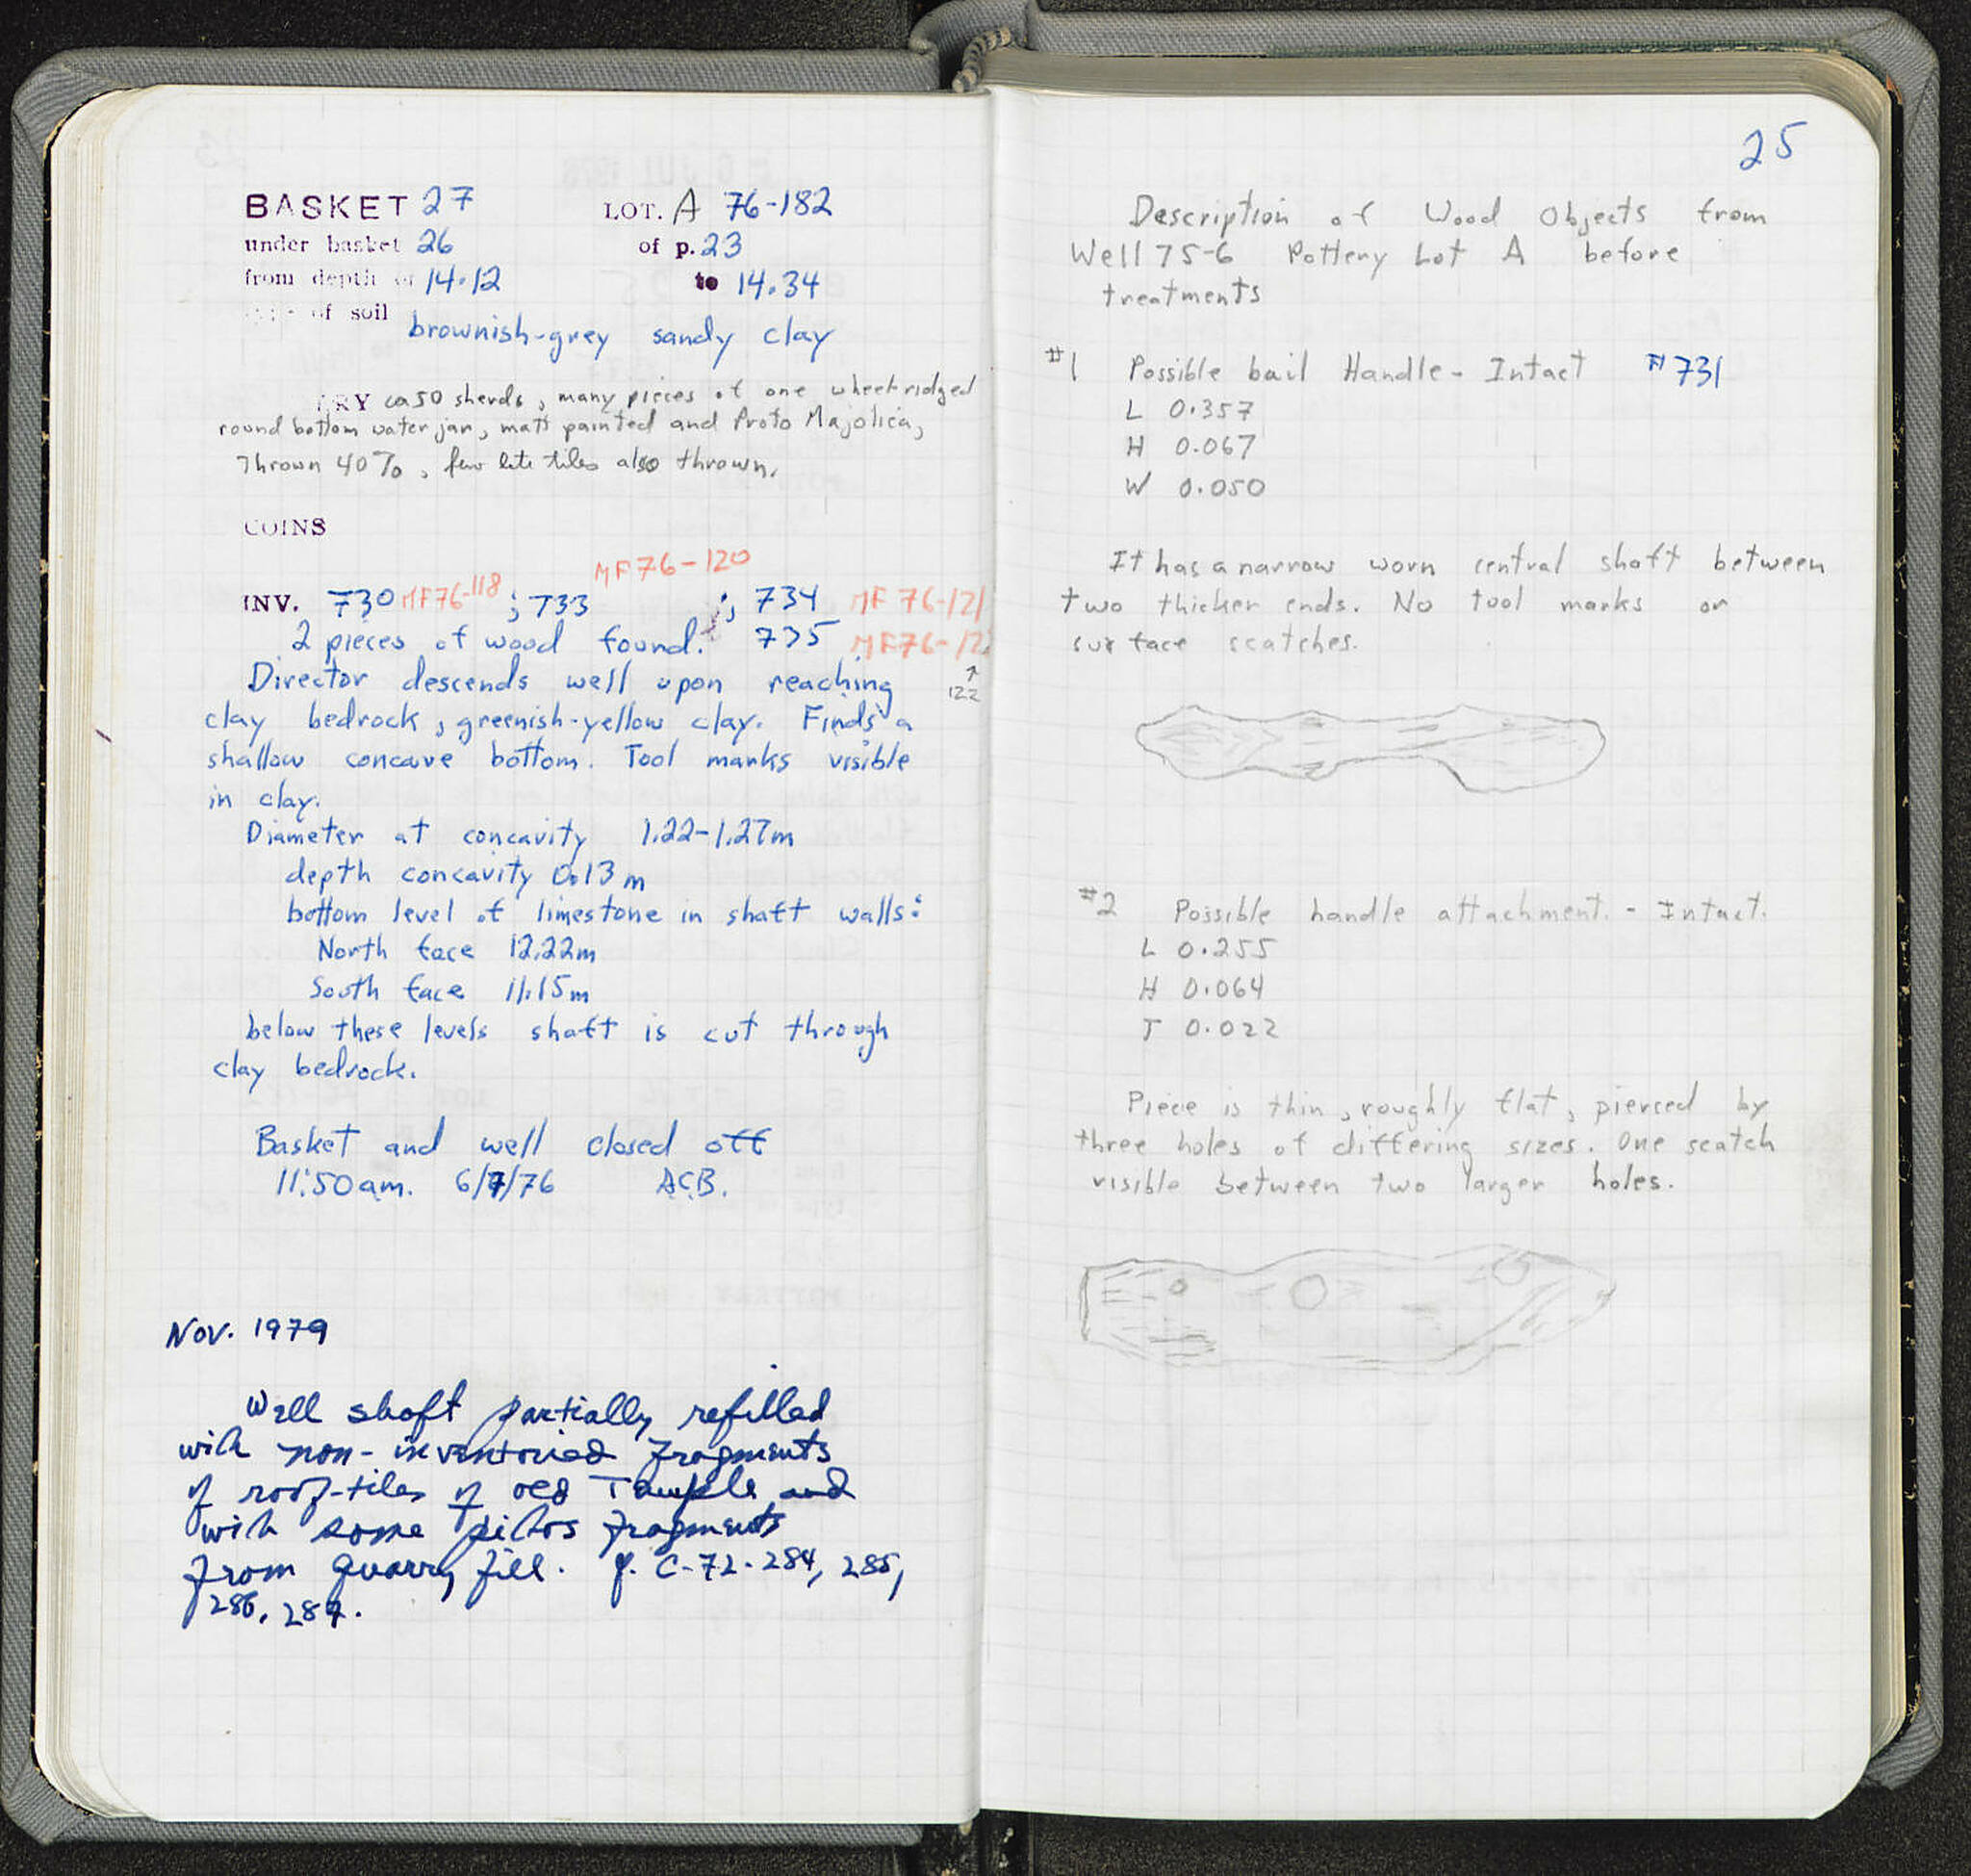 BASKET 27 LOT. A 76-182
under basket 26 of p. 23
from depth of 14.12 to 14.34
of soil brownish-grey sandy clay
ERY ca 50 sherds, many pieces of one wheel ridged
round bottom water jar, matt painted and Proto Majolica,
Thrown 40%, few late tiles also thrown.
COINS
MF 76-120
INV. 730 MF76-118 ; 733 ; 734 MF 76-121
2 pieces of wood found. 735 MF76-12
Director descends well upon reaching
122
clay bedrock, greenish-yellow clay. Finds a
shallow concave bottom. Tool marks visible
in clay.
Diameter at concavity 1.22-1.27m
depth concavity 0.13 m
bottom level of limestone in shaft walls:
North face 12.22m
South face 11.15m
below these levels shaft is cut through
clay bedrock.
Basket and well closed off
11:50 am. 6/7/76 ACB.
Nov. 1979
Well shaft partially refilled
with non-inventoried fragments
of roof-tiles of old Temple and
with some pithos fragments
from quarry fill. cf. C-72-284, 285,
286, 287.
25
Description of Wood Objects from
Well 75-6 Pottery Lot A before
treatments
#1 Possible bail Handle - Intact #731
L 0.357
H 0.067
W 0.050
It has a narrow worn central shaft between
two thicker ends. No tool marks or
surface scatches.
#2 Possible handle attachment. - Intact.
L 0.255
H 0.064
T 0.022
Piece is thin, roughly flat, pierced by
three holes of differing sizes. One scatch
visible between two larger holes.